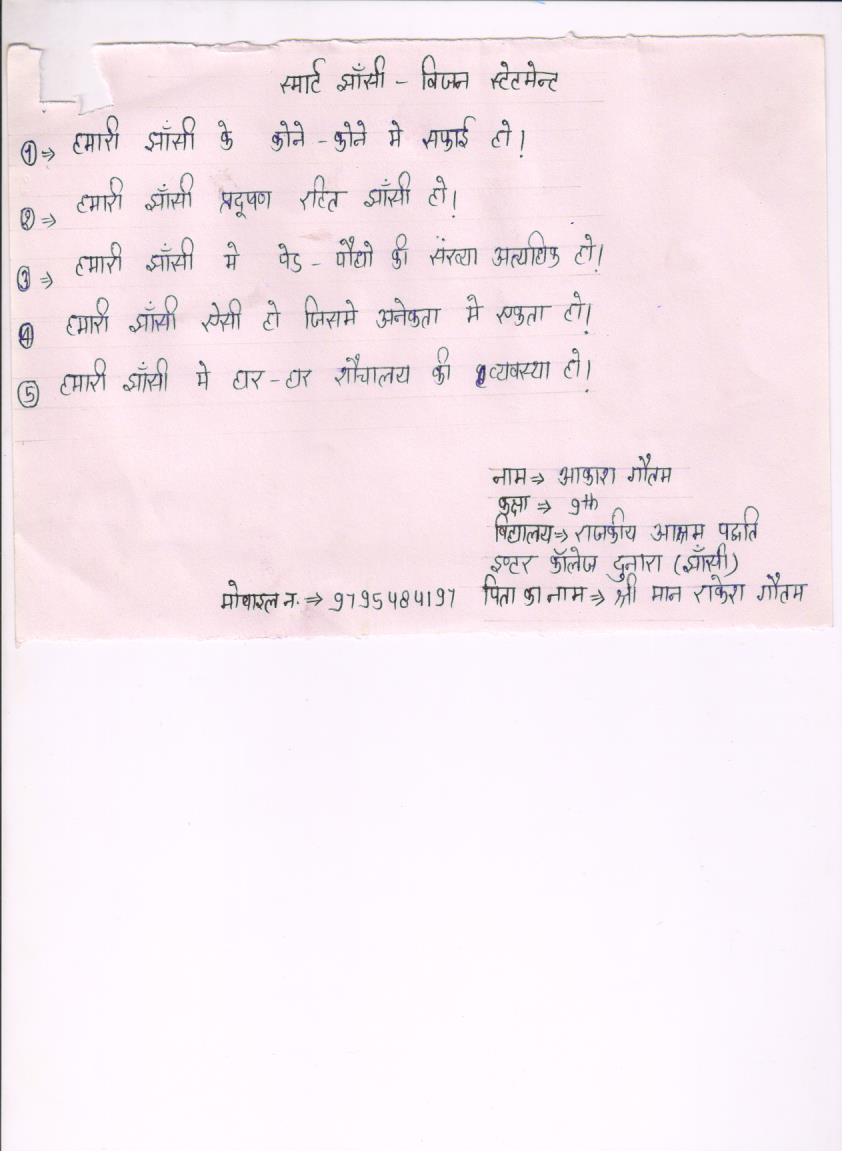 स्मार्ट झाँसी - विजन स्टेटमेन्ट
① ⇒ हमारी झाँसी के कोने - कोने मे सफाई हो।
② ⇒ हमारी झाँसी प्रदूषण रहित झाँसी हो।
③ ⇒ हमारी झाँसी मे पेड - पौधो की संख्या अत्यधिक हो।
④ हमारी झाँसी ऐसी हो जिसमे अनेकता मे एकता हो।
⑤ हमारी झाँसी मे घर - घर शौचालय की व्यवस्था हो।
नाम ⇒ आकाश गौतम
कक्षा ⇒ 9th
विद्यालय ⇒ राजकीय आश्रम पद्धति
इण्टर कॉलेज दुनारा (झाँसी)
मोबाइल न. ⇒ 9795484197 पिता का नाम ⇒ श्री मान राकेश गौतम